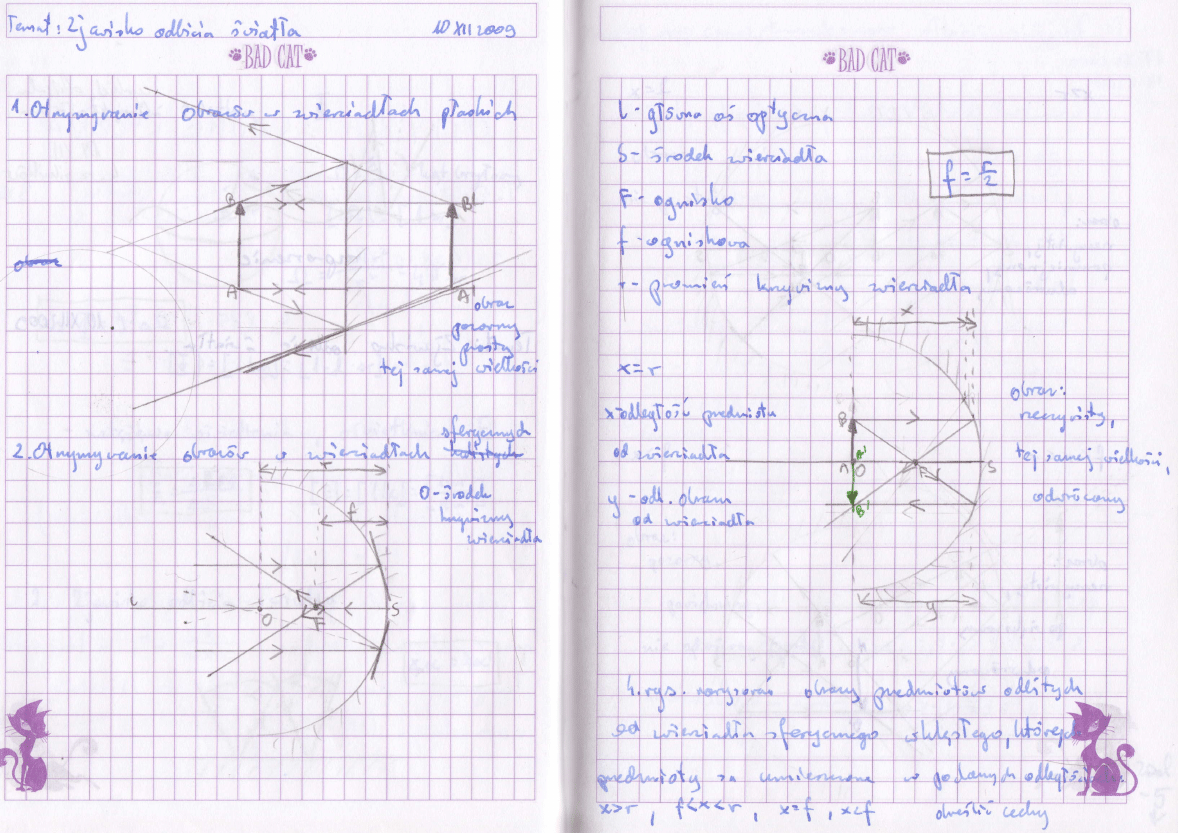 Temat: Zjawisko odbicia światła 10 XII 2009
BAD CAT
1. Otrzymywanie obrazów w zwierciadłach płaskich
B B'
obraz
A A'
obraz
pozorny
prosty
tej samej wielkości
2. Otrzymywanie obrazów w zwierciadłach sferycznych
r
O - środek
krzywizny
zwierciadła
f
l O F S
BAD CAT
l - główna oś optyczna
S - środek zwierciadła
F - ognisko
f - ogniskowa
r - promień krzywizny zwierciadła
f = r/2
x
x = r
x - odległość przedmiotu
od zwierciadła
y - odl. obrazu
od zwierciadła
B
A A' O F S
B'
y
obraz:
rzeczywisty,
tej samej wielkości,
odwrócony
4. rys. narysować obrazy przedmiotów odbitych
od zwierciadła sferycznego wklęsłego, których
przedmioty są umieszczone w podanych odległościach.
x>r, f<x<r, x=f, x<f określić cechy